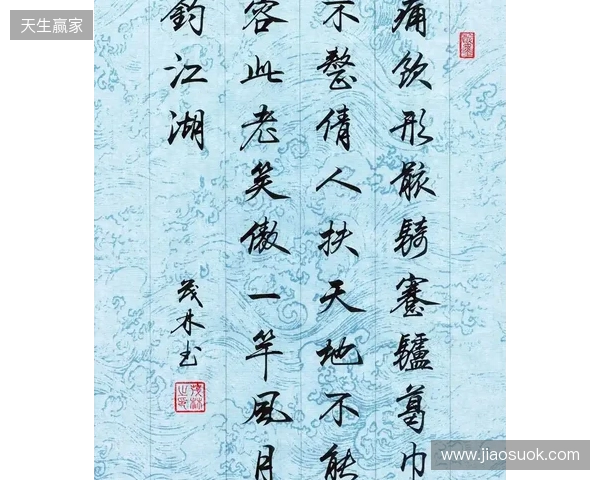 天生赢家
痛飲形骸騎蹇驢葛巾
不整倩人扶天地不能
容此老笑傲一竿風月
釣江湖
茂林书
www.jiaosuok.com